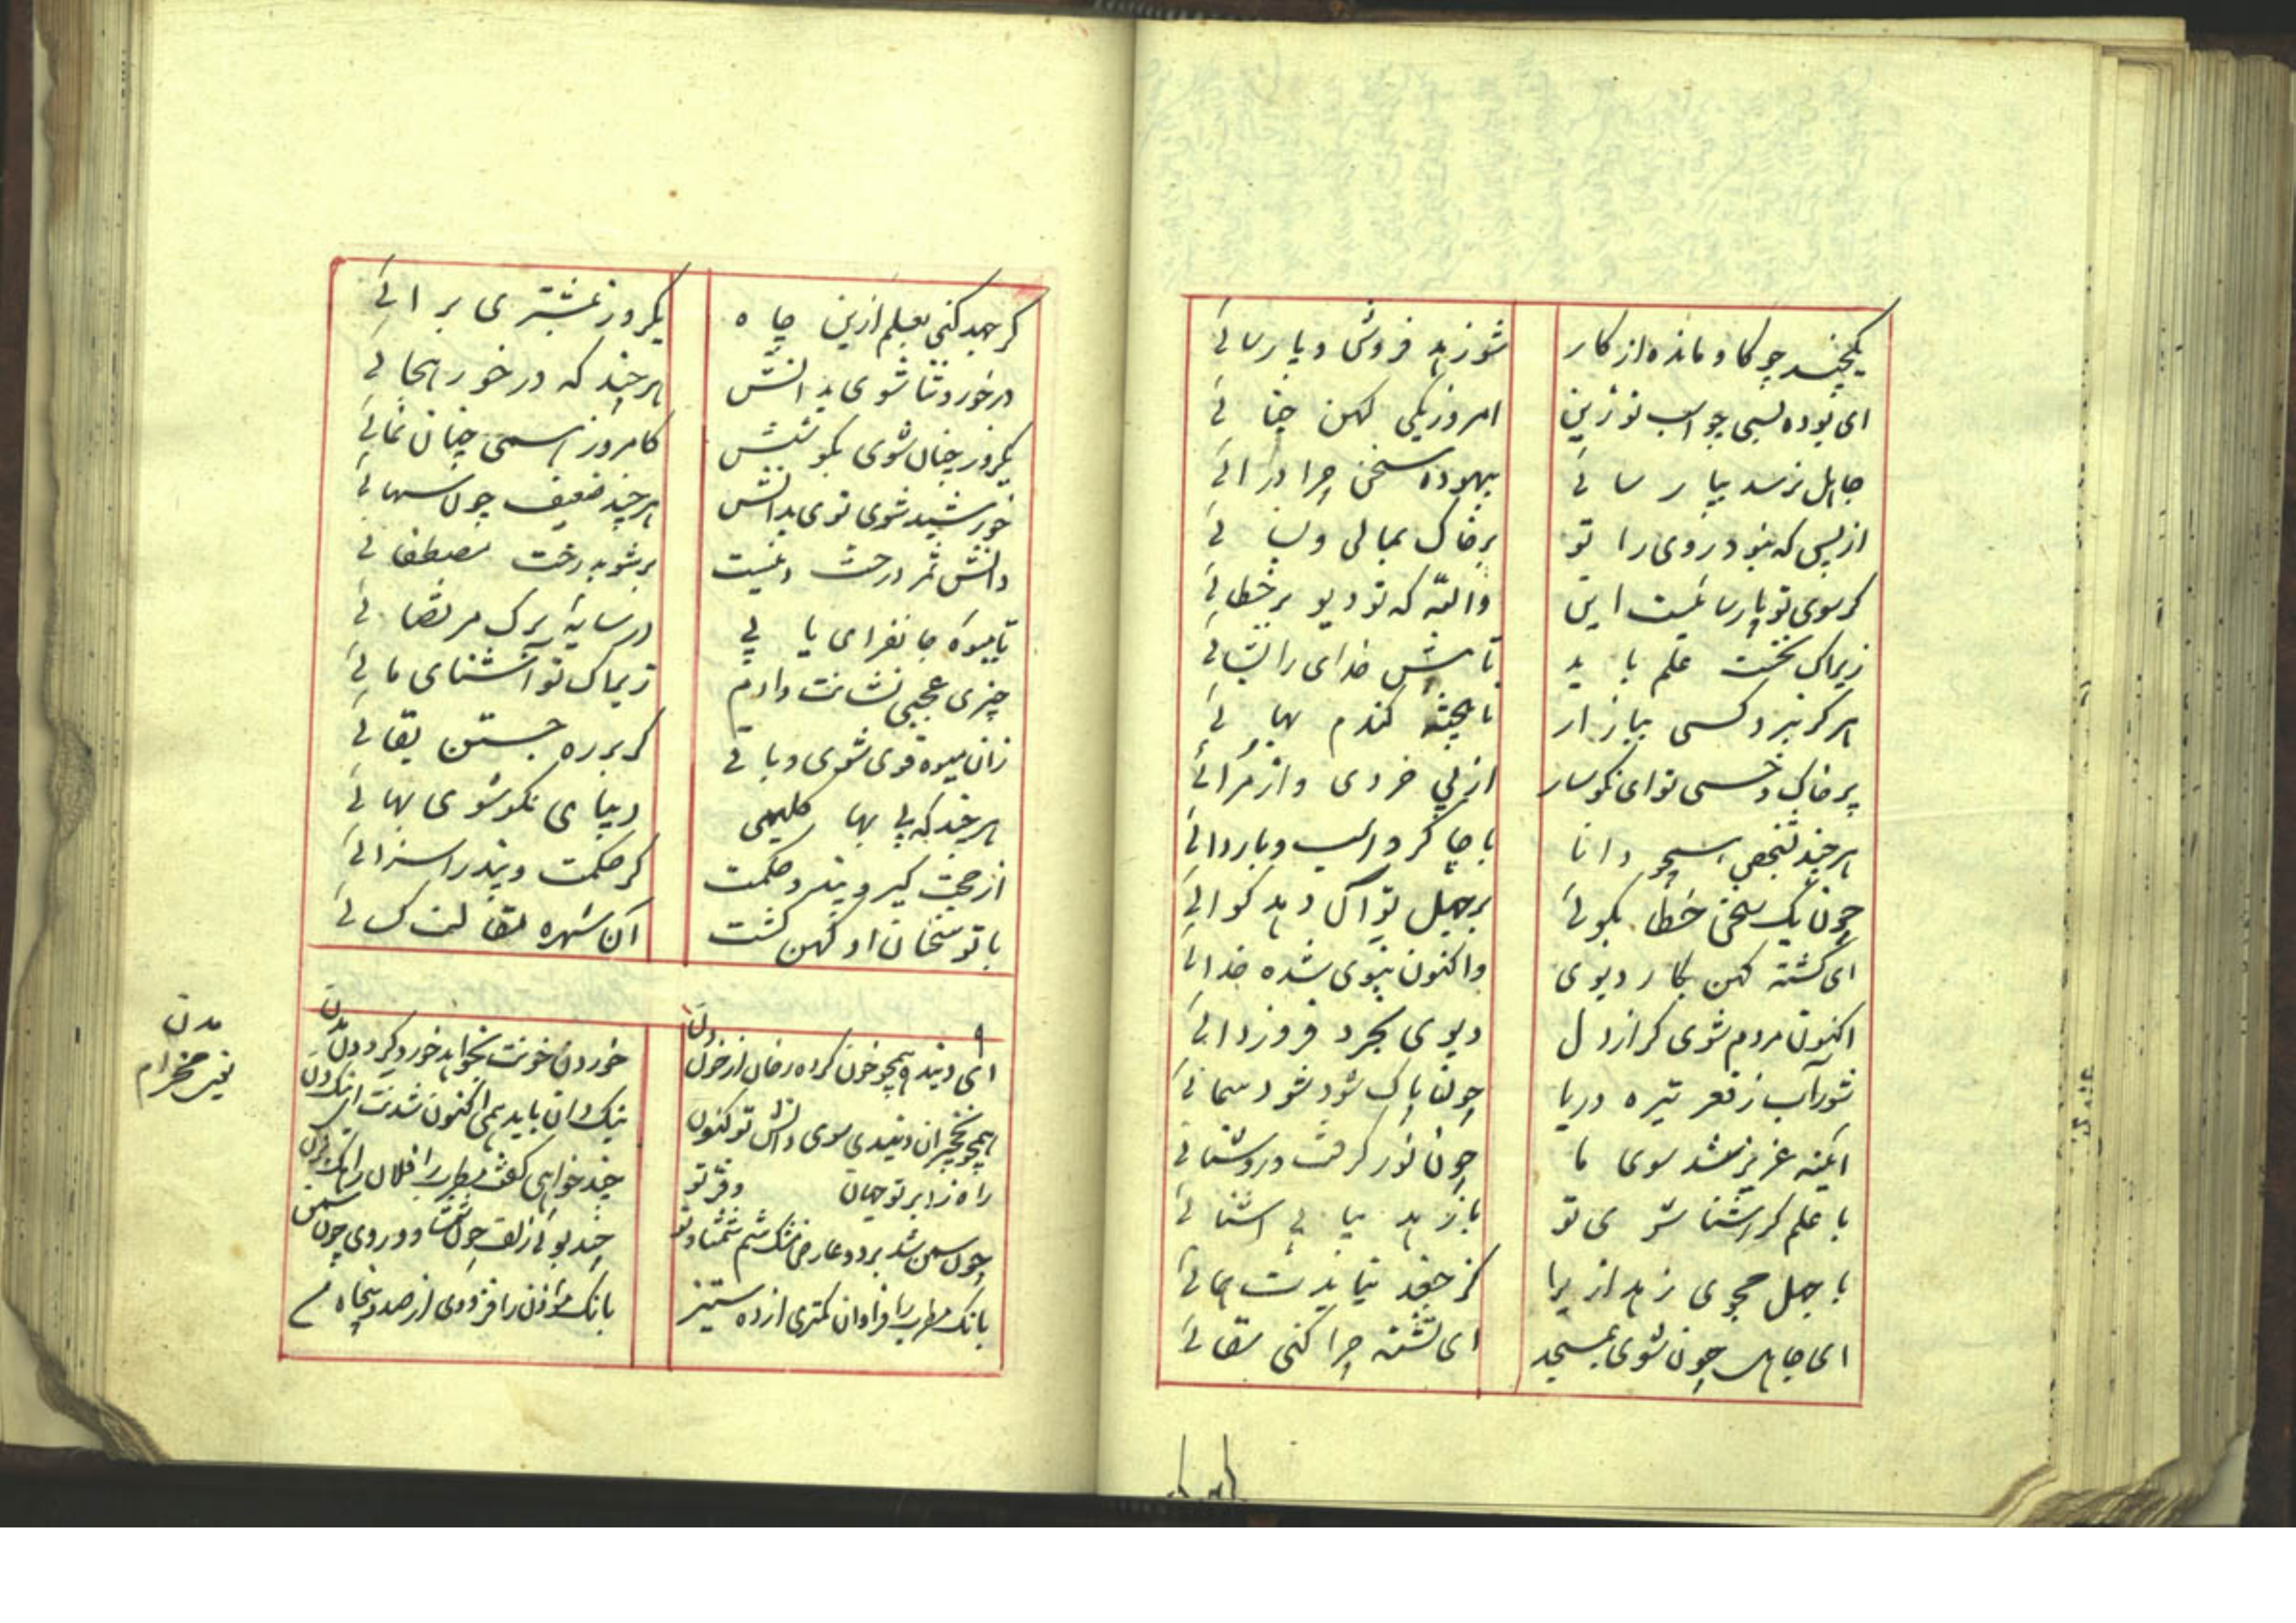 یکچند چو کاو مانده از کار شو زهد فروش و پارسائی
ای بوده بسی چو اسب نو زین امروز یکی کهن حنائی
جاهل نرسد بپارسائی بیهوده سخن چرا درائی
از پس که نبود روی را تو بر خاک بمالی و بسائی
کر سوی تو پارسائیست این والله که تو دیو پر خطائی
زیراک نخست علم باید تا پیش خدای را بشائی
هر کز نبرد کسی ببازار نا پخته کندم بهائی
پر خاک و خسی تو ای نکوسار از بی خردی و از مرائی
هر چند نجنبی اسپچو دانا با چاکر و اسب و با ردائی
چون یک سخن خطا بکوئی بر جهل تو آن دهد کوائی
ای کشته کهن بکار دیوی واکنون بنوی شده خدائی
اکنون مردم شوی کر از دل دیوی بخرد فروزدائی
شورآب ز قعر تیره دریا چون پاک شود شود سمائی
ایکینه عزیز شد سوی ما چون نور کرفت و روشنائی
با علم کر آشنا شوی تو با زهد بیابی آشنائی
با جهل مجوی زهد ازیرا کز جغد نیایدت همائی
ای جاهل چون شوی بمسجد ای تشنه چرا کنی سقائی
کر جهد کنی بعلم ازین چاه یکروز بمشتری برائی
در خورد ثنا شوی بدانش هر چند که در خور هجائی
یکروز چنان شوی بکوشش کامروز همی چنان نمائی
خورشید شوی توی بدانش هر چند ضعیف چون سهائی
دانش ثمر درخت دینست بر شو بدرخت مصطفائی
تا میوه جانفزای یابی در سایه برک مرتضائی
چیزی عجبی نشانت دادم زیراک تو آشنای مائی
زان میوه قوی شوی و باقی کر بر ره جستن بقائی
هر چند که بی بها کلیمی دیبای نکو شوی بهائی
از حجت کیر و پند و حکمت کر حکمت و پند را سزائی
با تو سخنان او کهن کشت آن شهره مقالت کسائی
ای دنیده همچو خون کرده رخان از خون دن خوردن خونت بخواهد خورد کرد دن مدن
همچو نخچیران دنیدی سوی دانش تو کنون نیک دان باید همی اکنون شدنت اینک دن
راه زد بر تو جهان و فر تو چند خواهی کفت مطرب را فلان راهک بزن
چون سمن شد بر دو عارض مشک شمشاد تو چند بوئی زلف چون شمشاد و روی چون سمن
بانک مطرب را فراوان کمتری از ده ستیز بانک مؤذن را فزودی از صد و پنجاه م
مدن
یعنی مخرام